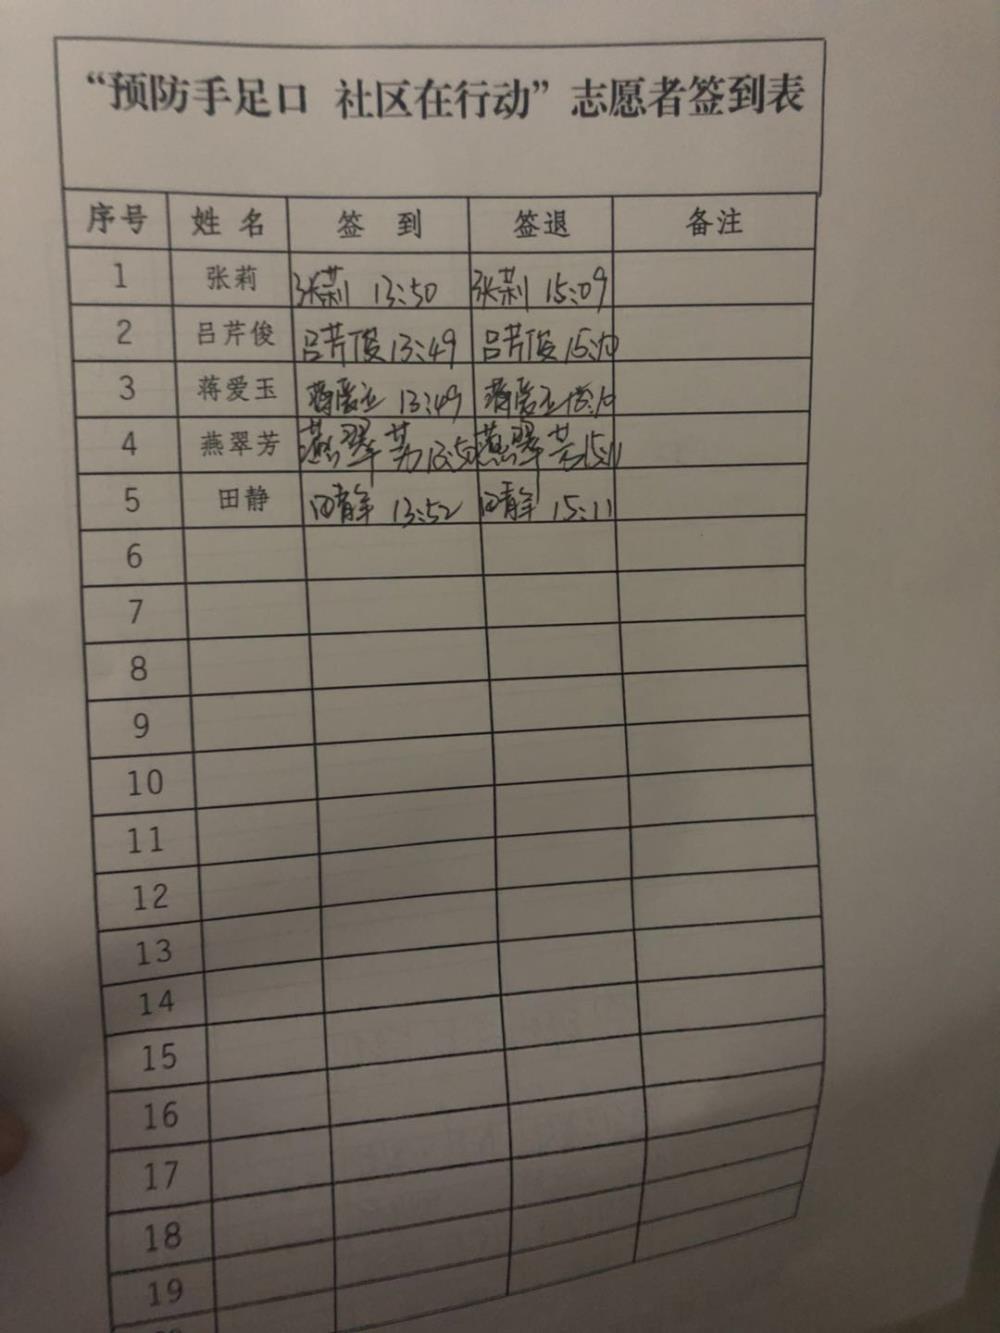 “预防手足口 社区在行动”志愿者签到表
序号 姓名 签到 签退 备注
1 张莉 张莉 13:50 张莉 15:09
2 吕芹俊 吕芹俊 13:49 吕芹俊 15:10
3 蒋爱玉 蒋爱玉 13:49 蒋爱玉 15:10
4 燕翠芳 燕翠芳 13:50 燕翠芳 15:11
5 田静 田静 13:52 田静 15:11
6
7
8
9
10
11
12
13
14
15
16
17
18
19